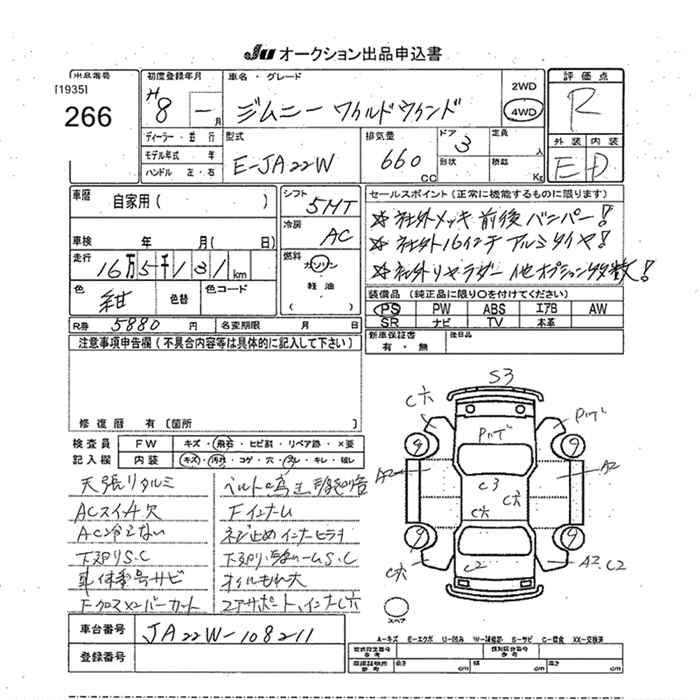 JU オークション出品申込書
出品番号
[1935]
266
初度登録年月
H8 - 月
車名・グレード
ジムニー ワイルドウインド
2WD
4WD
評価点
R
外装 内装
E D
ディーラー・並行
モデル年式 年
ハンドル 左・右
型式
E-JA22W
排気量
660 CC
ドア
3
形状
定員
人
積載
Kg
車歴
自家用( )
シフト
5MT
冷房
AC
車検 年 月( 日)
走行
16万5千131km
燃料
ガソリン
軽油
( )
色
紺
色替
色コード
R券 5880 円
名変期限 月 日
セールスポイント(正常に機能するものに限ります)
☆社外メッキ前後バンパー!
☆社外16インチアルミタイヤ!
☆社外リヤラダー他オプション多数!
装備品(純正品に限り○を付けてください)
PS PW ABS エアB AW
SR ナビ TV 本革
新車保証書
有・無
後日品
注意事項申告欄(不具合内容等は具体的に記入して下さい)
修復歴 有〔箇所 〕
検査員
記入欄
FW キズ・飛石・ヒビ割・リペア跡・×要
内装 キズ・汚れ・コゲ・穴・スレ・キレ・破レ
天張リタルミ
ACスイッチ欠
AC冷えない
下廻りS.C
車体番号サビ
Fクロス×2バーカット
Fインナーム
ネジ止めインナーヒラキ
オイルもれ大
S3
C穴
Pハゲ
9
9
A2
A2
Pハゲ
C3
C穴
C穴
9
9
C2
C穴
A2 C2
スペア
車台番号
JA22W-108211
登録番号
A-キズ E-エクボ U-凹み W-補修跡 S-サビ C-腐食 XX-交換済
型式指定番号
参考
類別区分番号
参考
長さ cm 幅 cm 高さ cm